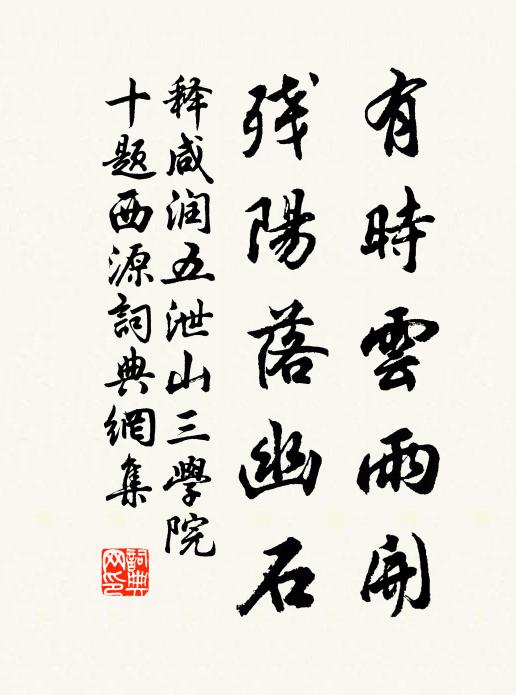 有時雲雨開
残陽落幽石
释咸润五泄山三學院
十题西源詞典網集
詞典网印